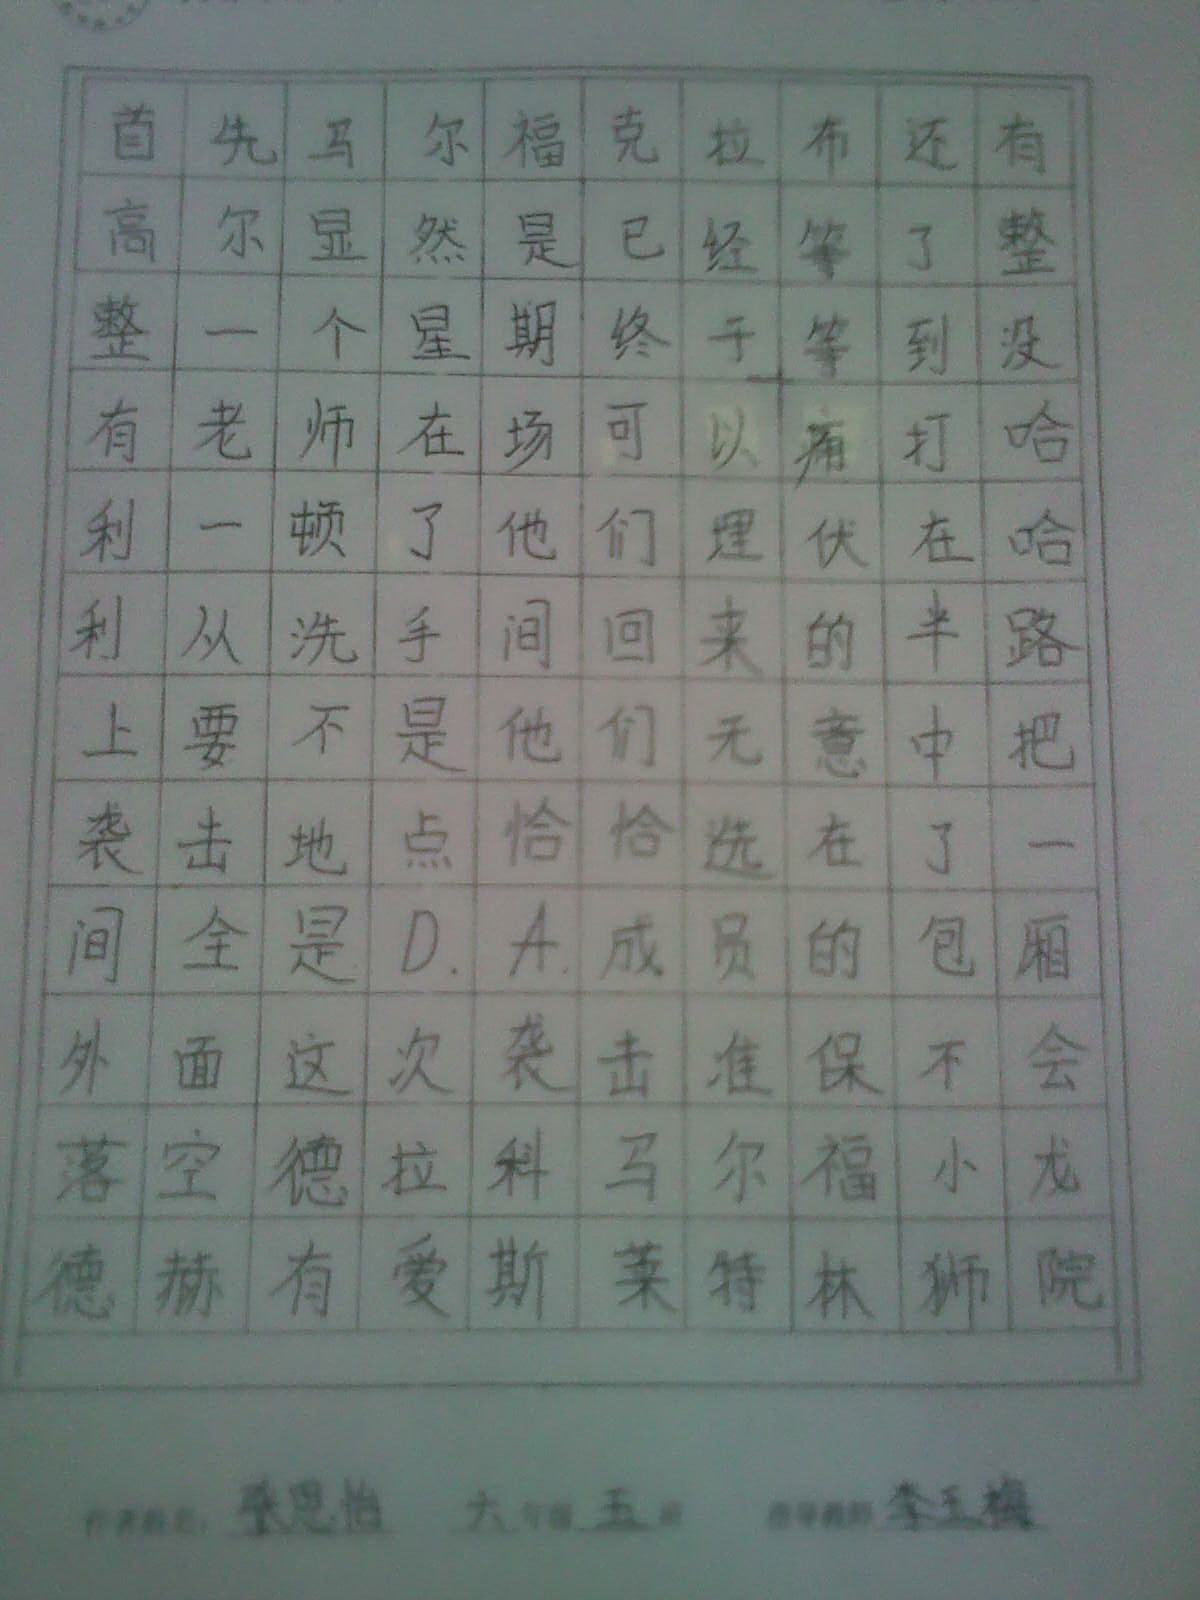 首先马尔福克拉布还有
高尔显然是已经等了整
整一个星期终于等到没
有老师在场可以痛打哈
利一顿了他们埋伏在哈
利从洗手间回来的半路
上要不是他们无意中把
袭击地点恰恰选在了一
间全是D.A.成员的包厢
外面这次袭击准保不会
落空德拉科马尔福小龙
德赫有爱斯莱特林狮院
作者姓名：张思怡 六年级五班 指导教师李玉梅